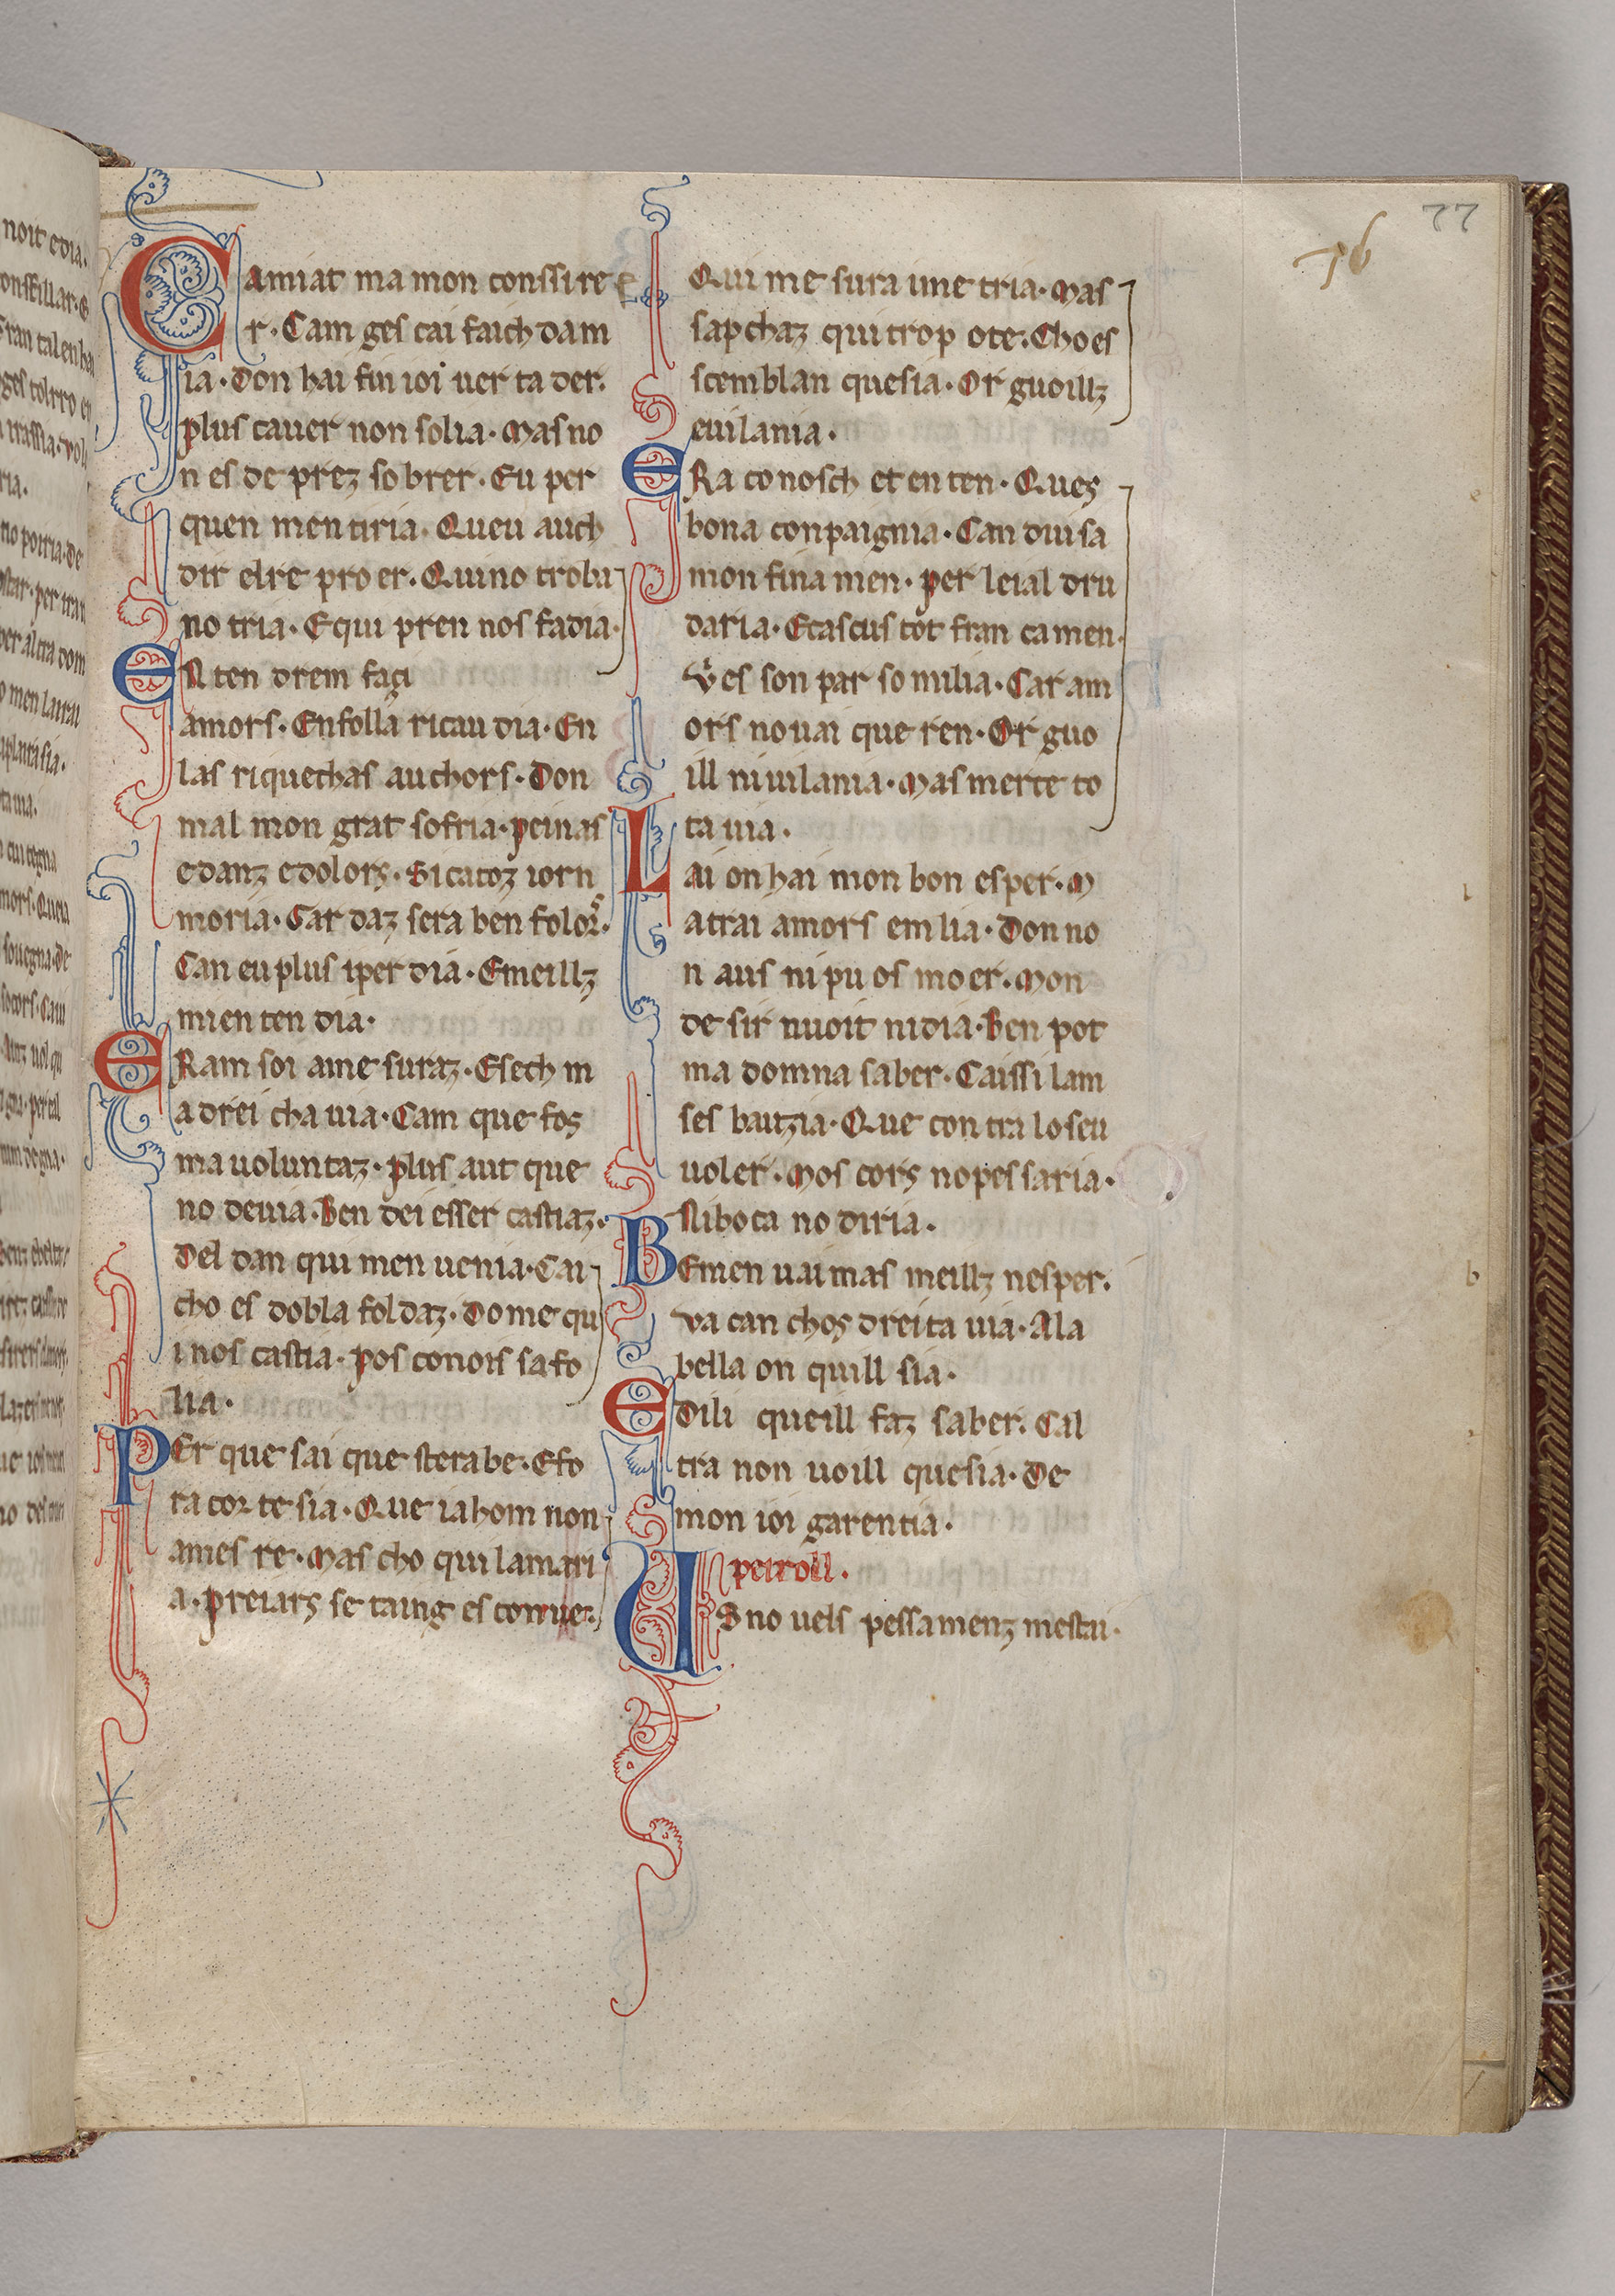 77
76
Camiat ma mon conssire
r. Cam ges cai faich dam
ia. Don hai fin ioi uer ta der.
plus cauer non solia. Mas no
n es de prez so brer. Eu per
quen men tiria. Queu auch
dir elre pro er. Qui no troba
no tria. E qui pren nos fadia.
EN ten drem façi
amors. En folla ricau dia. En
las riquechas auchors. Don
mal mon grat sofria. peinas
e danz e dolors. Si catoz iorn
moria. Car daz sera ben folors.
Can eu plus iper dia. E meillz
mi en ten dia.
ERam soi ame suraz. E sech m
a drei cha uia. Cam que fos
ma uoluntaz. plus aut que
no deuia. Ben dei esser castiaz.
Del dan qui men uenia. Cai
cho es dobla foldaz. Dome qu
i nos castia. pos conois sa fo
lia.
PEr que sai que stera be. E fo
ra cor te sia. Que ia hom non
ames re. Mas cho qui lamari
a. preiars se taing es conue.
Qui me sura une tria. Mas
sapchaz qui trop ote. Cho es
scemblan que sia. Or guoillz
e uilania.
ERa conosch et en ten. Ques
bona conpaignia. Can diuisa
mon fina men. per leial dru
daria. E cascus tot fran ca men.
Ves son par so milia. Car am
ors no uai que ren. Or guo
ill ni uilania. Mas merce to
ta uia.
Lai on hai mon bon esper. M
a trai amors em lia. Don no
n aus ni pu os mo er. Mon
de sir nuoit ni dia. Ben pot
ma domna saber. Caissi lam
ses bauzia. Que con tra lo seu
uoler. Mos cors no pes saria.
Ni boca no diria.
BEmen uai mas meillz nesper.
Va can chos dreita uia. A la
bella on quill sia.
EDili queill faz saber. Cal
tra non uoill que sia. De
mon ioi garentia.
peiroll.
US no uels pessamenz mestai.